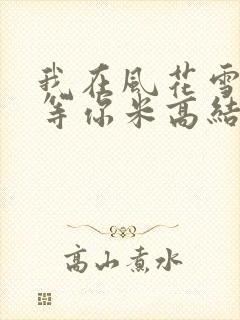 我在風花雪
等你米高結
高山煮水